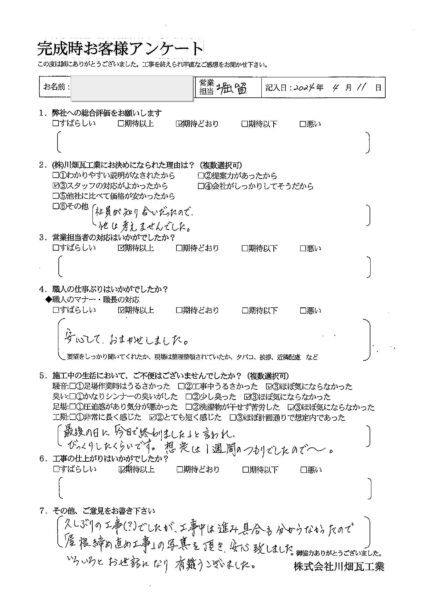 完成時お客様アンケート
この度は誠にありがとうございました。工事を終えられ率直なご感想をお聞かせ下さい。
お名前: 営業担当 堀留 記入日:2024年 4月 11日
1．弊社への総合評価をお願いします
□すばらしい □期待以上 ☑期待どおり □期待以下 □悪い
2．(株)川畑瓦工業にお決めになられた理由は？（複数選択可）
□①わかりやすい説明がなされたから □②提案力があったから
☑③スタッフの対応がよかったから □④会社がしっかりしてそうだから
□⑤他社に比べて価格が安かったから
□⑥その他 社員が知り合いだったので、
他は考えませんでした。
3．営業担当者の対応はいかがでしたか？
□すばらしい ☑期待以上 □期待どおり □期待以下 □悪い
4．職人の仕事ぶりはいかがでしたか？
◆職人のマナー・職長の対応
□すばらしい ☑期待以上 □期待どおり □期待以下 □悪い
安心して、おまかせしました。
要望をしっかり聞いてくれたか、現場は整理整頓されていたか、タバコ、挨拶、近隣配慮 など
5．施工中の生活において、ご不便はございませんでしたか？（複数選択可）
騒音:□①足場作業時はうるさかった □②工事中うるさかった ☑③ほぼ気にならなかった
臭い:□①かなりシンナーの臭いがした □②少し臭った ☑③ほぼ気にならなかった
足場:□①圧迫感があり気分が悪かった □②洗濯物が干せず苦労した ☑③ほぼ気にならなかった
工期:□①非常に長く感じた ☑②とても短く感じた □③ほぼ計画通りで想定内であった
最後の日に「今日で終わりました」と言われ、
びっくりしたくらいです。想定は1週間のつもりでしたので～。
6．工事の仕上がりはいかがでしたか？
□すばらしい ☑期待以上 □期待どおり □期待以下 □悪い
7．その他、ご意見をお書き下さい
久しぶりの工事(?)でしたが、工事中は進み具合も分からなかったので
「屋根締め直め工事」の写真を頂き、安心致しました。
いろいろとお世話になり 有難うございました。
御協力ありがとうございました。
株式会社川畑瓦工業